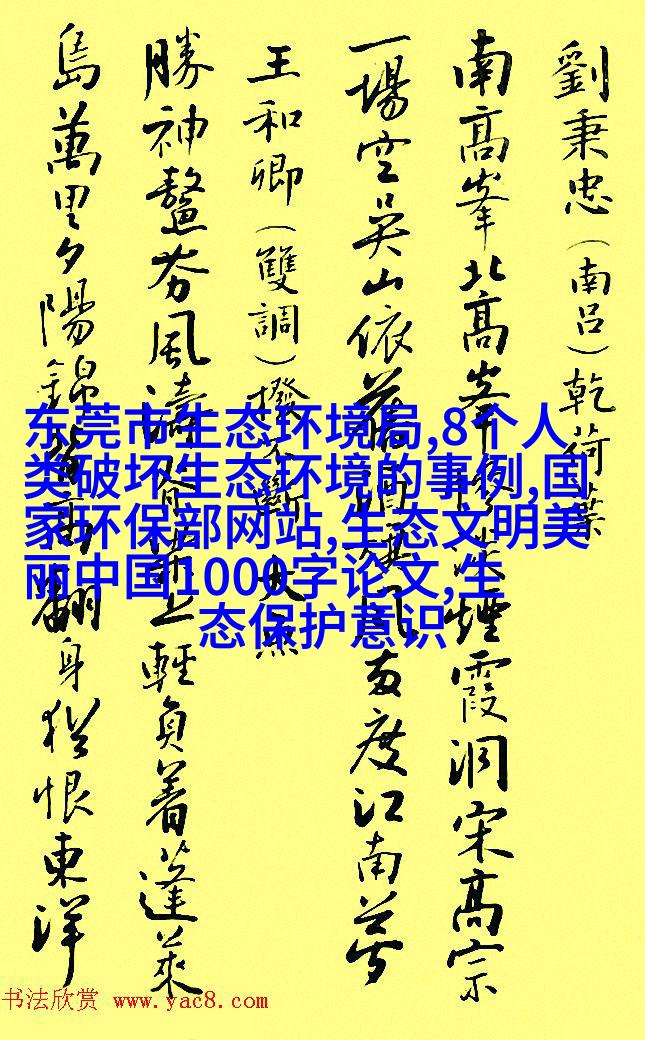 劉秉忠(南呂)乾荷葉
南高峯北高峯慘淡煙霞洞宋高宗
一場空吴山依舊酒旗風兩度江南夢
王和卿(雙調)撥不斷 大魚
勝神鰲夯風濤脊梁上輕負着蓬萊
島萬里夕陽錦背高翻身猶恨東洋
东莞市生态环境局,8个人
类破坏生态环境的事例,国
家环保部网站,生态文明美
丽中国1000字论文,生
态保护意识
书法欣赏 www.yac8.com